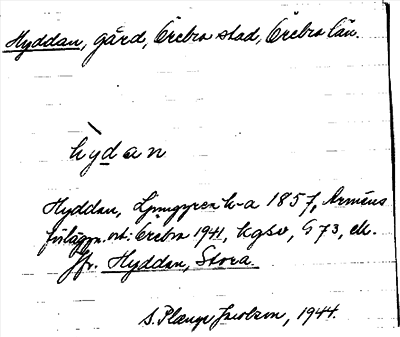 Hyddan, gård, Örebro stad, Örebro län.
hỳdan
Hyddan, Ljunggren h-a 1857, Armens
förläggn. ort: Örebro 1941, kgsv, G 73, ek.
Jfr. Hyddan, Stora.
S. Plange Jacobson, 1944.